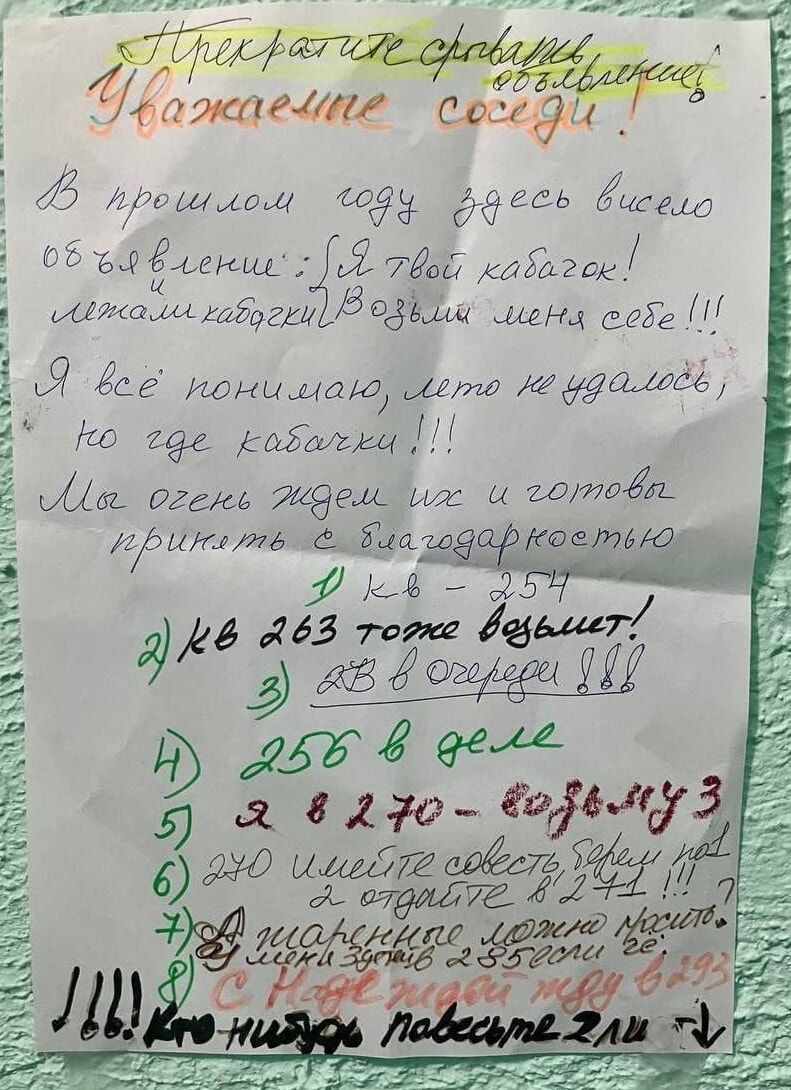 Прекратите срывать
объявление!
Уважаемые соседи!
В прошлом году здесь висело
объявление: Я твой кабачок!
и
лежали кабачки Возьми меня себе!!!
Я всё понимаю, лето не удалось,
но где кабачки!!!
Мы очень ждем их и готовы
принять с благодарностью
1) кв - 254
2) кв 263 тоже возьмет!
3) 2В в очереди!!!
4) 256 в деле
5) я в 270 - возьму 3
6) 270 имейте совесть, берем по 1
2 отдайте в 271!!!
7) А жаренные можно просить?
У меня 285 если че.
8) С Надеждой жду в 293
!!!! Кто нибудь повесьте 2 ли ↓